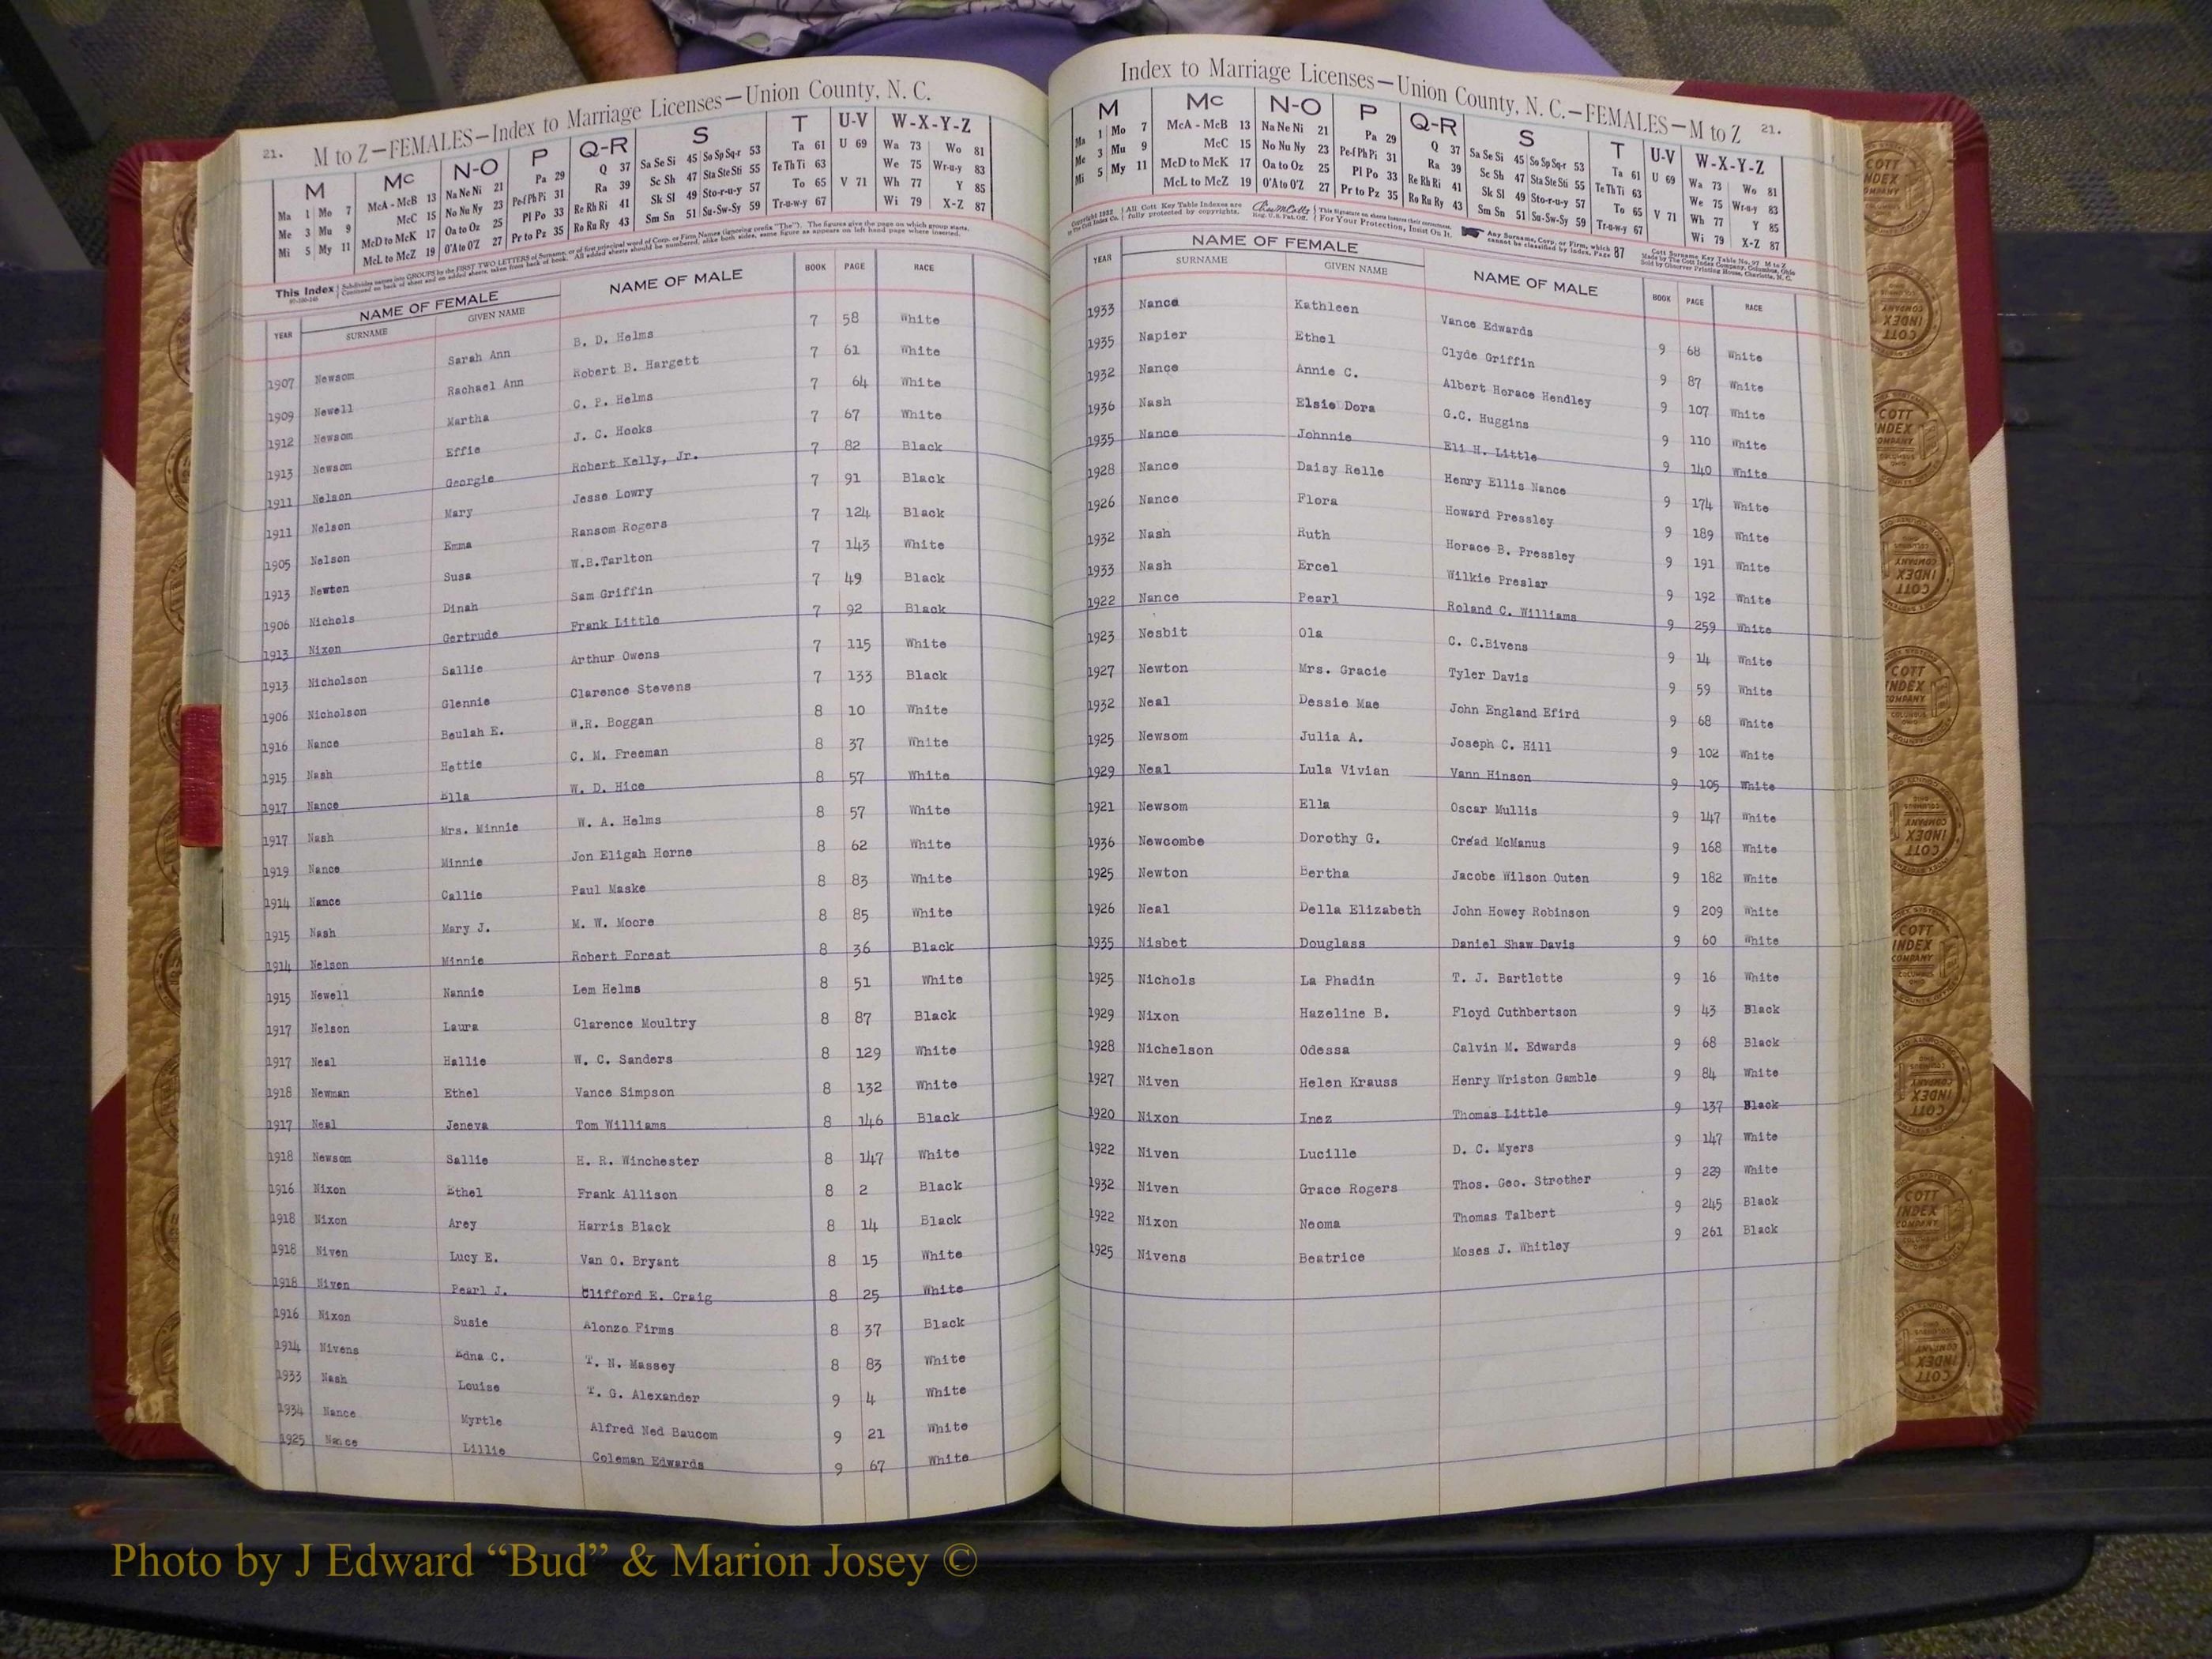 21. M to Z—FEMALES—Index to Marriage Licenses—Union County, N. C.
M Mc N-O P Q-R S T U-V W-X-Y-Z
Ma 1 Mo 7 McA - McB 13 Na Ne Ni 21 Pa 29 Q 37 Sa Se Si 45 So Sp Sq-r 53 Ta 61 U 69 Wa 73 Wo 81
Me 3 Mu 9 McC 15 No Nu Ny 23 Pe-f Ph Pi 31 Ra 39 Sc Sh 47 Sta Ste Sti 55 Te Th Ti 63 We 75 Wr-u-y 83
Mi 5 My 11 McD to McK 17 Oa to Oz 25 Pl Po 33 Re Rh Ri 41 Sk Sl 49 Sto-r-u-y 57 To 65 V 71 Wh 77 Y 85
McL to McZ 19 O'A to O'Z 27 Pr to Pz 35 Ro Ru Ry 43 Sm Sn 51 Su-Sw-Sy 59 Tr-u-w-y 67 Wi 79 X-Z 87
This Index Subdivides names into GROUPS by the FIRST TWO LETTERS of Surname, or of first principal word of Corp. or Firm Names (ignoring prefix "The"). The figures give the page on which group starts.
Continued on back of sheet and on added sheets, taken from back of book. All added sheets should be numbered, alike both sides, same figure as appears on left hand page where inserted.
YEAR NAME OF FEMALE NAME OF MALE BOOK PAGE RACE
SURNAME GIVEN NAME
1907 Newsom Sarah Ann B. D. Helms 7 58 White
1909 Newell Rachael Ann Robert B. Hargett 7 61 White
1912 Newsom Martha C. P. Helms 7 64 White
1913 Newsom Effie J. C. Hooks 7 67 White
1911 Nelson Georgie Robert Kelly, Jr. 7 82 Black
1911 Nelson Mary Jesse Lowry 7 91 Black
1905 Nelson Emma Ransom Rogers 7 124 Black
1913 Newton Susa W.B.Tarlton 7 143 White
1906 Nichols Dinah Sam Griffin 7 49 Black
1913 Nixon Gertrude Frank Little 7 92 Black
1913 Nicholson Sallie Arthur Owens 7 115 White
1906 Nicholson Glennie Clarence Stevens 7 133 Black
1916 Nance Beulah E. W.R. Boggan 8 10 White
1915 Nash Hettie C. M. Freeman 8 37 White
1917 Nance Ella W. D. Hice 8 57 White
1917 Nash Mrs. Minnie W. A. Helms 8 57 White
1919 Nance Minnie Jon Eligah Horne 8 62 White
1914 Nance Callie Paul Maske 8 83 White
1915 Nash Mary J. M. W. Moore 8 85 White
1914 Nelson Minnie Robert Forest 8 36 Black
1915 Newell Nannie Lem Helms 8 51 White
1917 Nelson Laura Clarence Moultry 8 87 Black
1917 Neal Hallie W. C. Sanders 8 129 White
1918 Newman Ethel Vance Simpson 8 132 White
1917 Neal Jeneva Tom Williams 8 146 Black
1918 Newsom Sallie H. R. Winchester 8 147 White
1916 Nixon Ethel Frank Allison 8 2 Black
1918 Nixon Arey Harris Black 8 14 Black
1918 Niven Lucy E. Van O. Bryant 8 15 White
1918 Niven Pearl J. Clifford E. Craig 8 25 White
1916 Nixon Susie Alonzo Firms 8 37 Black
1914 Nivens Edna C. T. N. Massey 8 83 White
1933 Nash Louise T. G. Alexander 9 4 White
1934 Nance Myrtle Alfred Ned Baucom 9 21 White
1925 Nance Lillie Coleman Edwards 9 67 White
Index to Marriage Licenses—Union County, N. C.—FEMALES—M to Z 21.
M Mc N-O P Q-R S T U-V W-X-Y-Z
Ma 1 Mo 7 McA - McB 13 Na Ne Ni 21 Pa 29 Q 37 Sa Se Si 45 So Sp Sq-r 53 Ta 61 U 69 Wa 73 Wo 81
Me 3 Mu 9 McC 15 No Nu Ny 23 Pe-f Ph Pi 31 Ra 39 Sc Sh 47 Sta Ste Sti 55 Te Th Ti 63 We 75 Wr-u-y 83
Mi 5 My 11 McD to McK 17 Oa to Oz 25 Pl Po 33 Re Rh Ri 41 Sk Sl 49 Sto-r-u-y 57 To 65 V 71 Wh 77 Y 85
McL to McZ 19 O'A to O'Z 27 Pr to Pz 35 Ro Ru Ry 43 Sm Sn 51 Su-Sw-Sy 59 Tr-u-w-y 67 Wi 79 X-Z 87
All Cott Key Table Indexes are fully protected by copyrights. For Your Protection, Insist On It. Any Surname, Corp. or Firm, which cannot be classified by index, Page 87
YEAR NAME OF FEMALE NAME OF MALE BOOK PAGE RACE
SURNAME GIVEN NAME
1933 Nance Kathleen Vance Edwards 9 68 White
1935 Napier Ethel Clyde Griffin 9 87 White
1932 Nance Annie C. Albert Horace Hendley 9 107 White
1936 Nash Elsie Dora G.C. Huggins 9 110 White
1935 Nance Johnnie Eli H. Little 9 140 White
1928 Nance Daisy Relle Henry Ellis Nance 9 174 White
1926 Nance Flora Howard Pressley 9 189 White
1932 Nash Ruth Horace B. Pressley 9 191 White
1933 Nash Ercel Wilkie Preslar 9 192 White
1922 Nance Pearl Roland C. Williams 9 259 White
1923 Nesbit Ola C. C.Bivens 9 14 White
1927 Newton Mrs. Gracie Tyler Davis 9 59 White
1932 Neal Dessie Mae John England Efird 9 68 White
1925 Newsom Julia A. Joseph C. Hill 9 102 White
1929 Neal Lula Vivian Vann Hinson 9 105 White
1921 Newsom Ella Oscar Mullis 9 147 White
1936 Newcombe Dorothy G. Cread McManus 9 168 White
1925 Newton Bertha Jacobe Wilson Outen 9 182 White
1926 Neal Della Elizabeth John Howey Robinson 9 209 White
1935 Nisbet Douglass Daniel Shaw Davis 9 60 White
1925 Nichols La Phadin T. J. Bartlette 9 16 White
1929 Nixon Hazeline B. Floyd Cuthbertson 9 43 Black
1928 Nichelson Odessa Calvin M. Edwards 9 68 Black
1927 Niven Helen Krauss Henry Wriston Gamble 9 84 White
1920 Nixon Inez Thomas Little 9 137 Black
1922 Niven Lucille D. C. Myers 9 147 White
1932 Niven Grace Rogers Thos. Geo. Strother 9 229 White
1922 Nixon Neoma Thomas Talbert 9 245 Black
1925 Nivens Beatrice Moses J. Whitley 9 261 Black
Photo by J Edward “Bud” & Marion Josey ©